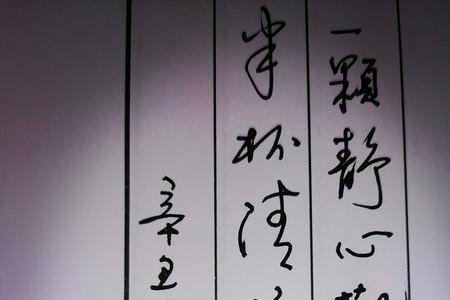 一颗静心
半杯清
辛丑